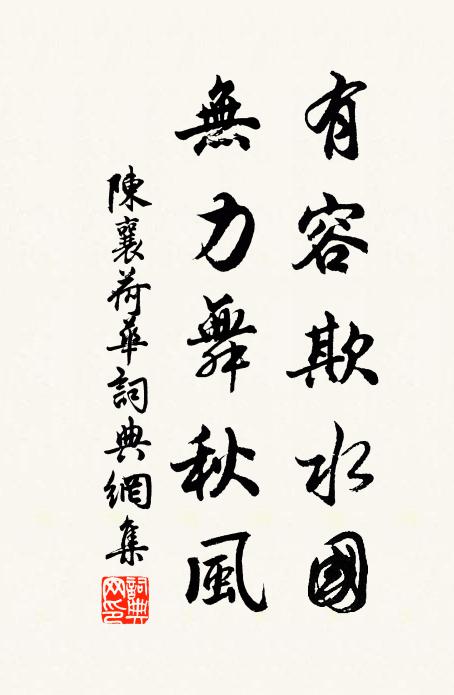 有容欺水國
無力舞秋風
陳襄荷華詞典網集
詞典網印